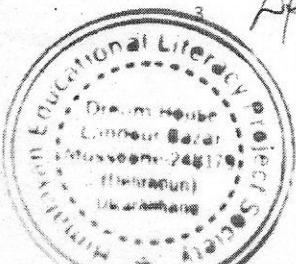 3
Himalayan Educational Literacy Project Society
Dream House
Landour Bazar
(Dehradun)
Uttarakhand